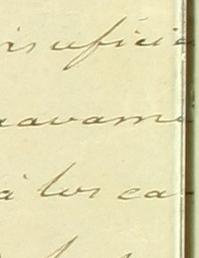 isuficie
avame
á los ca-